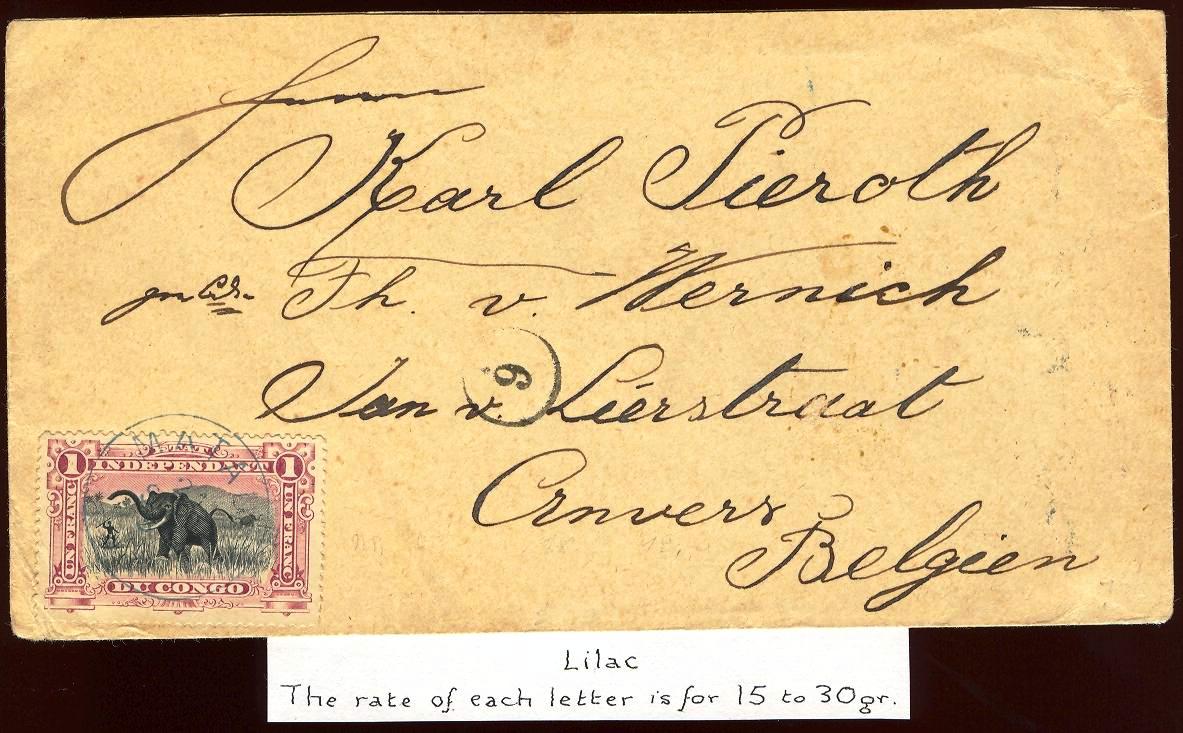 Herrn
Karl Pieroth
Th. v. Wernich
Van v. Lierstraat
Anvers
Belgien
9
MATA
ÉTAT
1 INDEPENDANT 1
UN FRANC
UN FRANC
DU CONGO
Lilac
The rate of each letter is for 15 to 30gr.